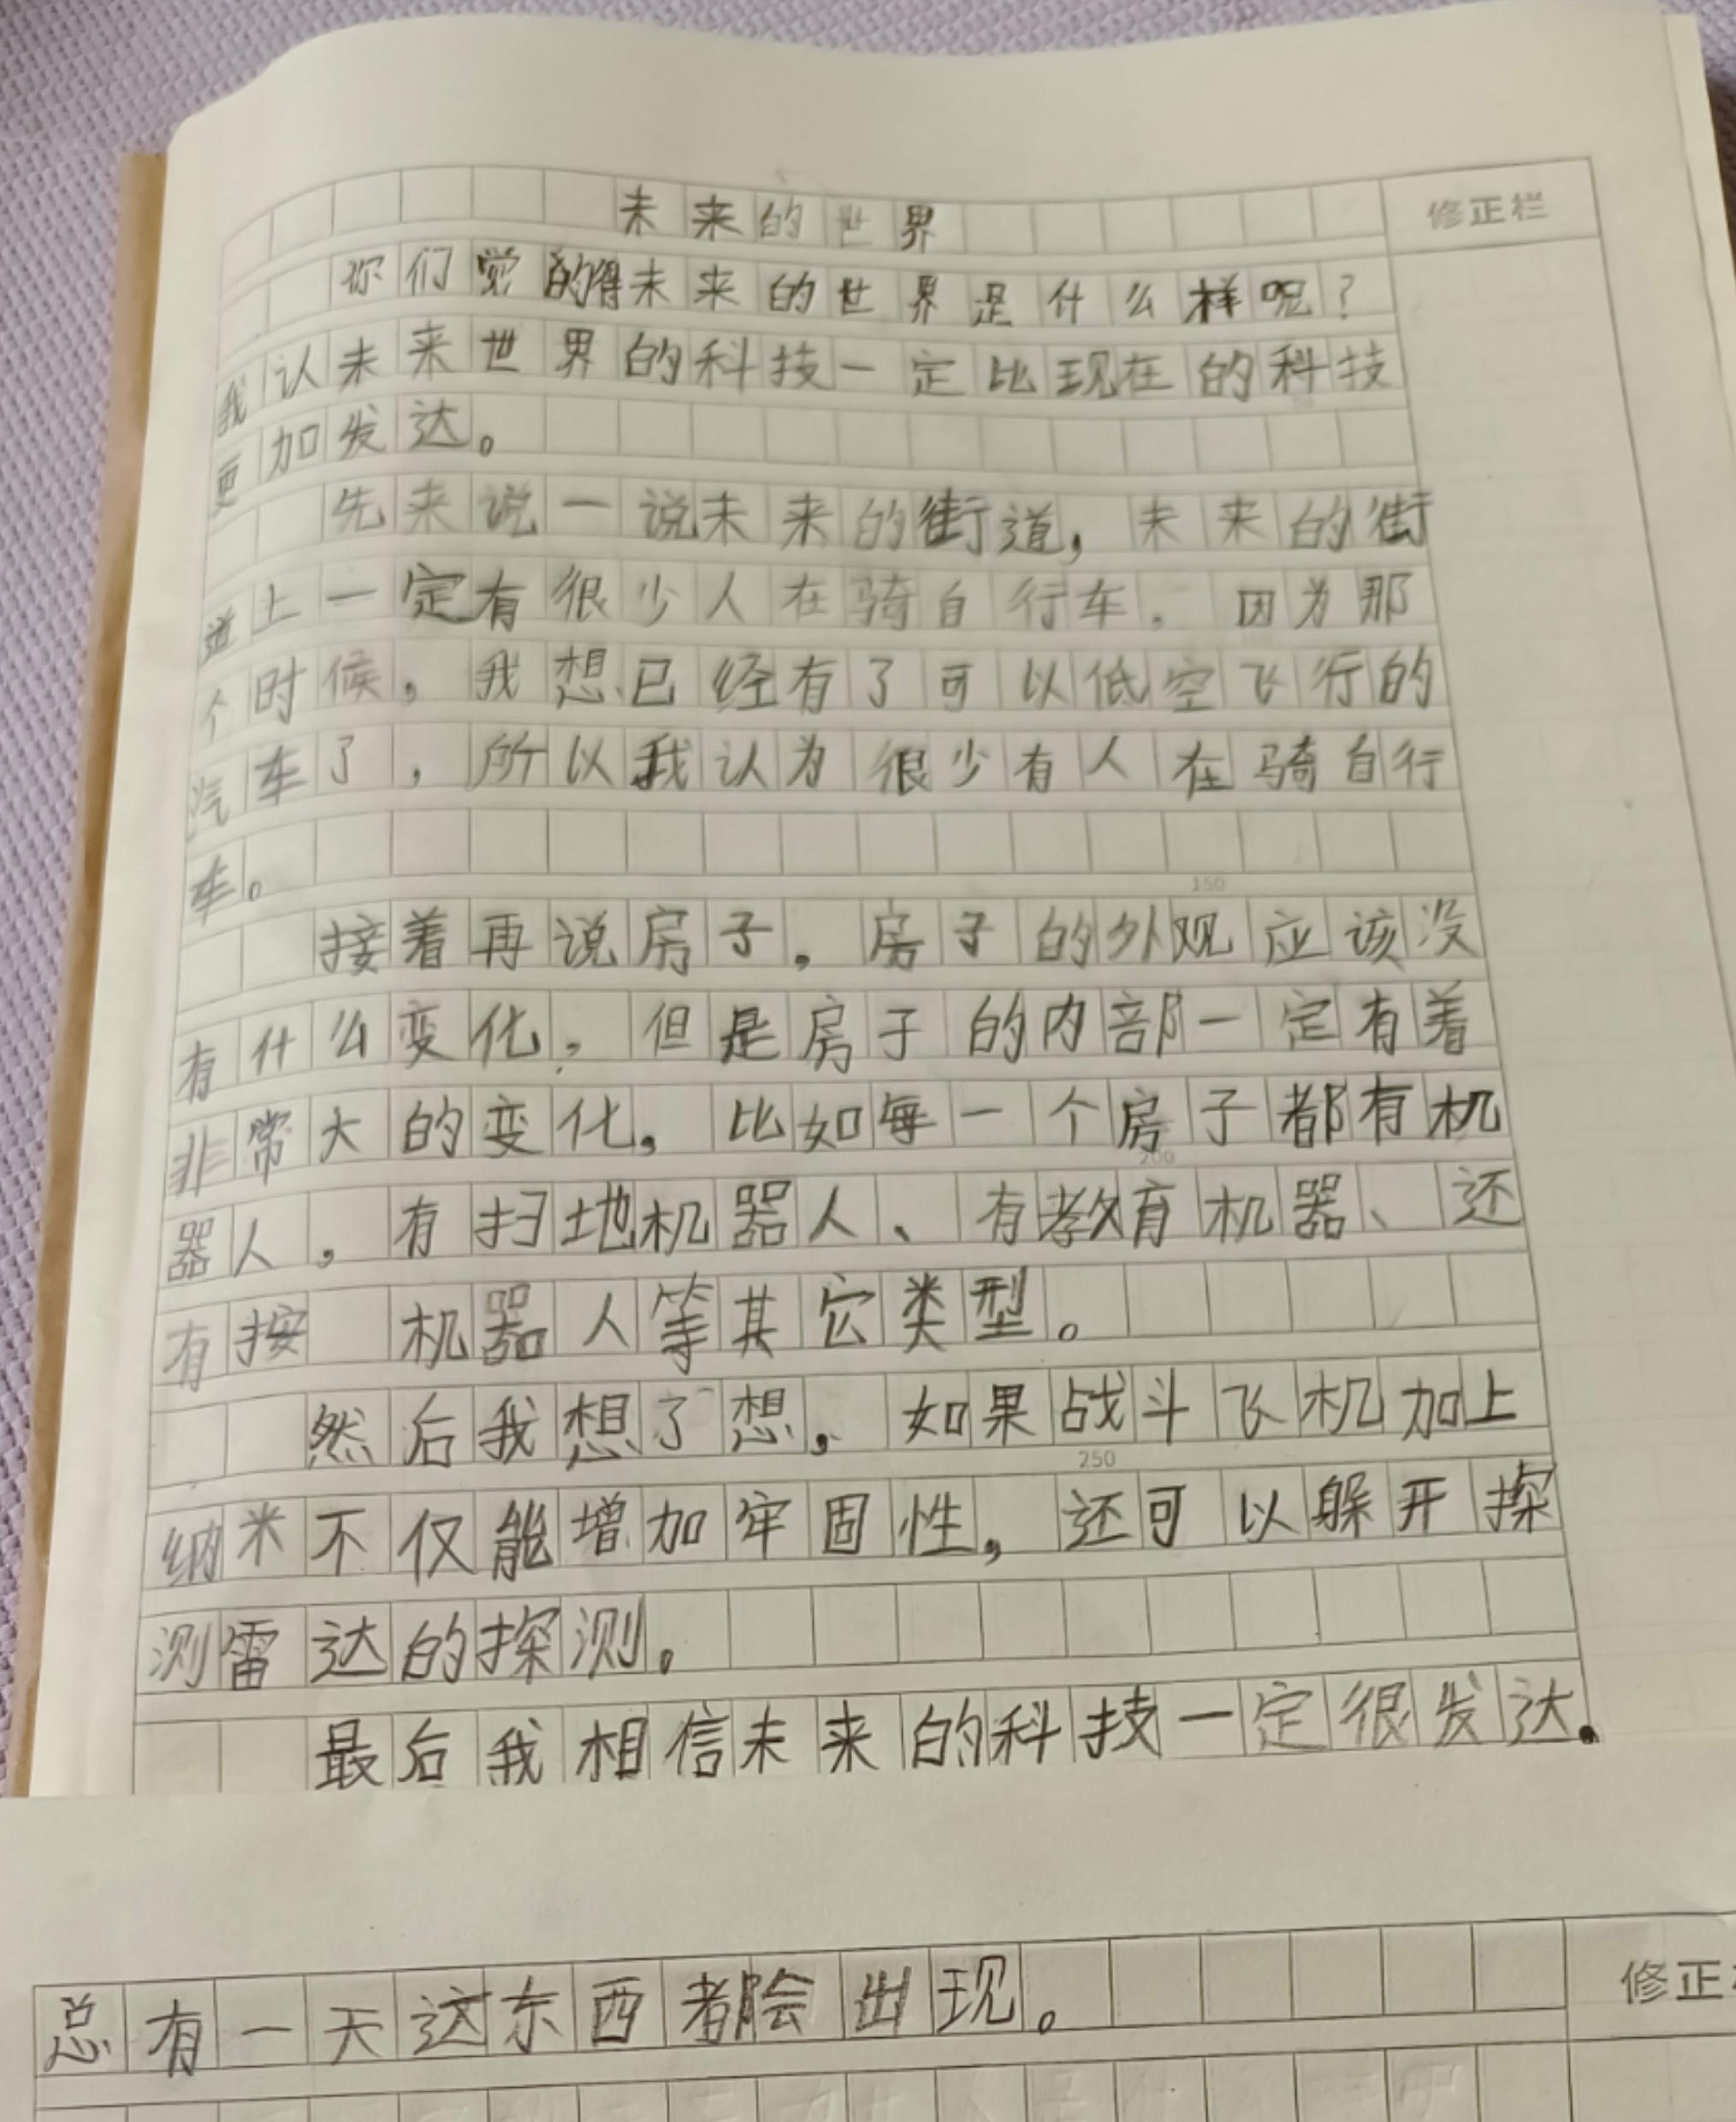 未来的世界
修正栏
你们觉的得未来的世界是什么样呢?
我认未来世界的科技一定比现在的科技
更加发达。
先来说一说未来的街道,未来的街
道上一定有很少人在骑自行车。因为那
个时候,我想已经有了可以低空飞行的
汽车了,所以我认为很少有人在骑自行
车。
150
接着再说房子,房子的外观应该没
有什么变化,但是房子的内部一定有着
非常大的变化,比如每一个房子都有机
200
器人,有扫地机器人、有教育机器、还
有按 机器人等其它类型。
然后我想了想,如果战斗飞机加上
250
纳米不仅能增加牢固性,还可以躲开探
测雷达的探测。
最后我相信未来的科技一定很发达.
修正
总有一天这东西都会出现。